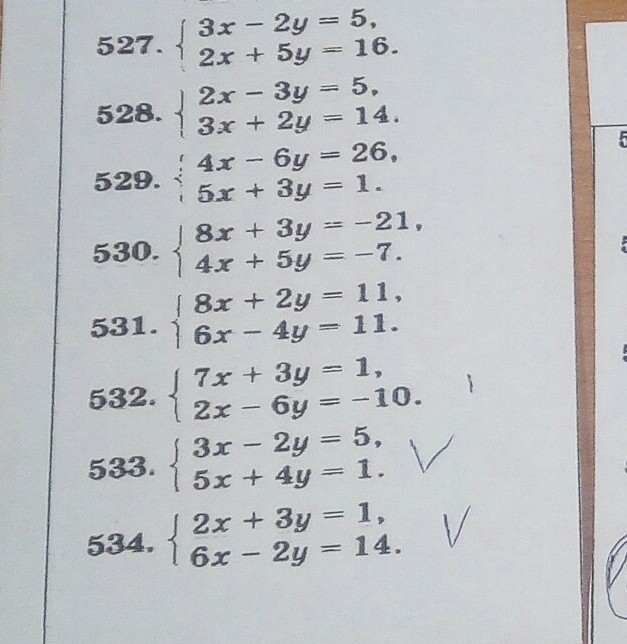 527. { 3x − 2y = 5,
2x + 5y = 16.
528. { 2x − 3y = 5,
3x + 2y = 14.
529. { 4x − 6y = 26,
5x + 3y = 1.
530. { 8x + 3y = −21,
4x + 5y = −7.
531. { 8x + 2y = 11,
6x − 4y = 11.
532. { 7x + 3y = 1,
2x − 6y = −10.
533. { 3x − 2y = 5,
5x + 4y = 1.
534. { 2x + 3y = 1,
6x − 2y = 14.